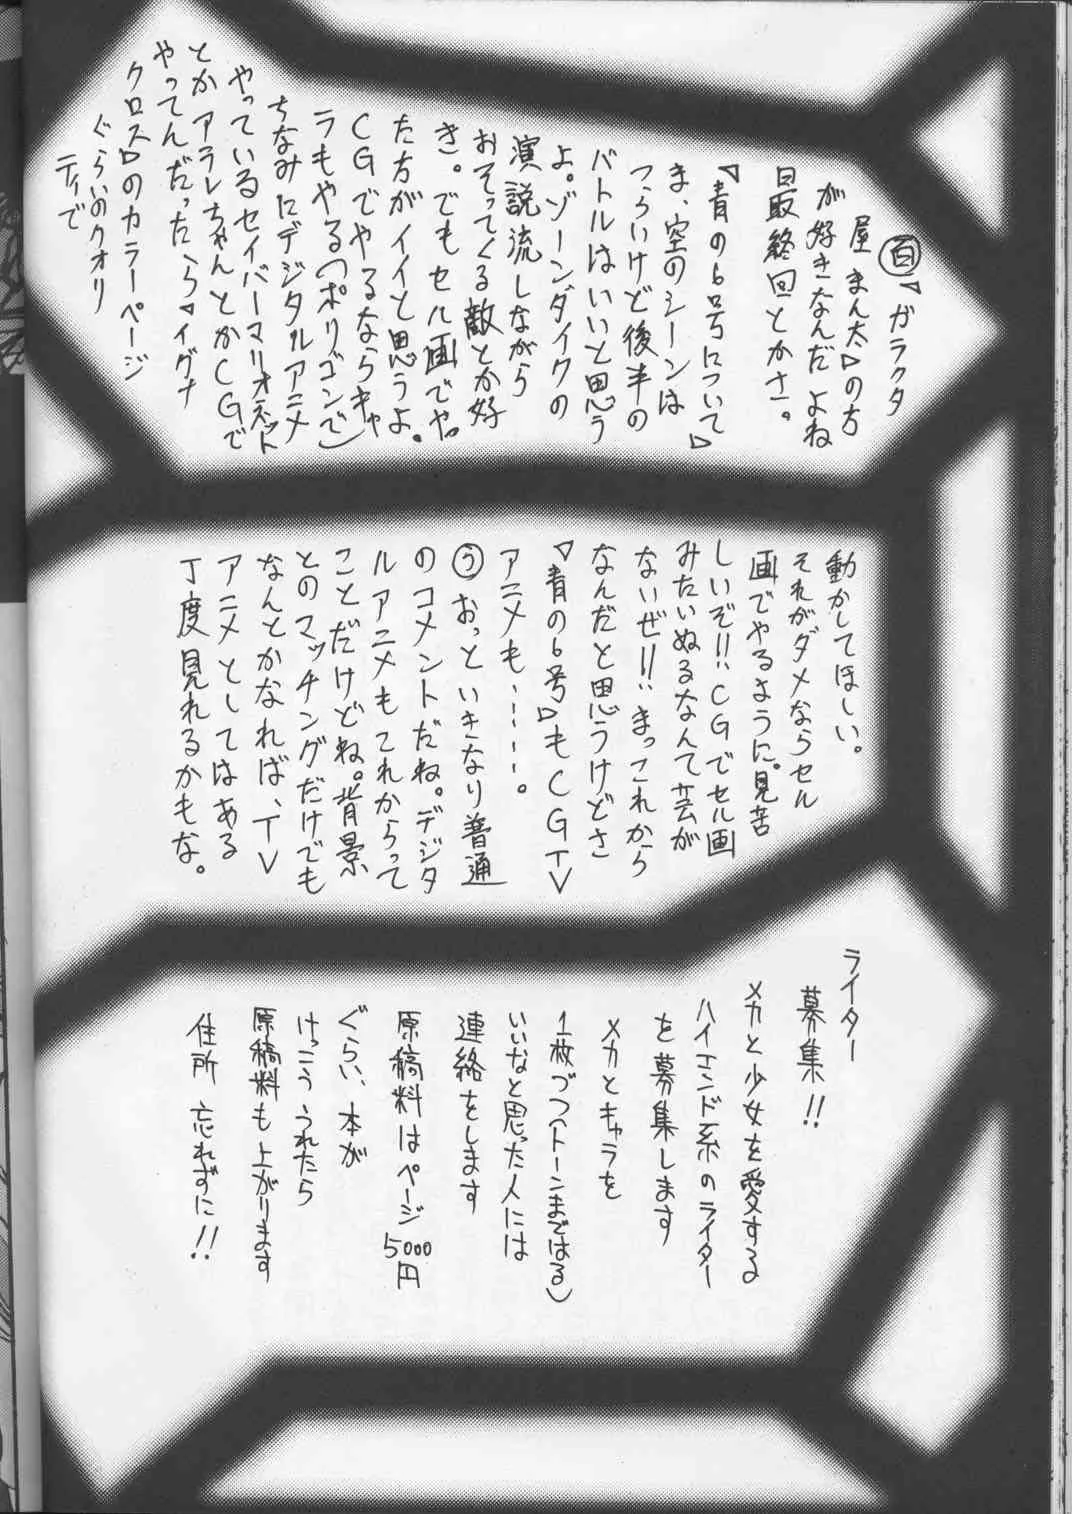 百▽ガラクタ
屋まん太△の方
が好きなんだよね
最終回とかさ。
▽青の6号について△
ま、空のシーンは
つらいけど後半の
バトルはいいと思う
よ。ゾーンダイクの
演説流しながら
おそってくる敵とか好
き。でもセル画でや
た方がイイと思うよ。
CGでやるならキャ
ラもやる(ポリゴンで)
ちなみにデジタルアニメ
やっているセイバーマリオネット
とかアラレちゃんとかCGで
やってんだったら▽イグナ
クロス△のカラーページ
ぐらいのクォリ
ティで
動かしてほしい。
それがダメならセル
画でやるように。見苦
しいぞ!!CGでセル画
みたいぬるなんて芸が
ないぜ!!まっこれから
なんだと思うけどさ
▽青の6号△もCGTV
アニメも・・・・・。
うおっといきなり普通
のコメントだね。デジタ
ルアニメもこれからって
ことだけどね。背景
とのマッチングだけでも
なんとかなれば、TV
アニメとしてはある
丁度見れるかもな。
ライター
募集!!
メカと少女を愛する
ハイエンド系のライター
を募集します
メカとキャラを
1枚づつ(トーンまではる)
いいなと思った人には
連絡をします
原稿料はページ5000円
ぐらい、本が
けっこううれたら
原稿料も上がります
住所忘れずに!!